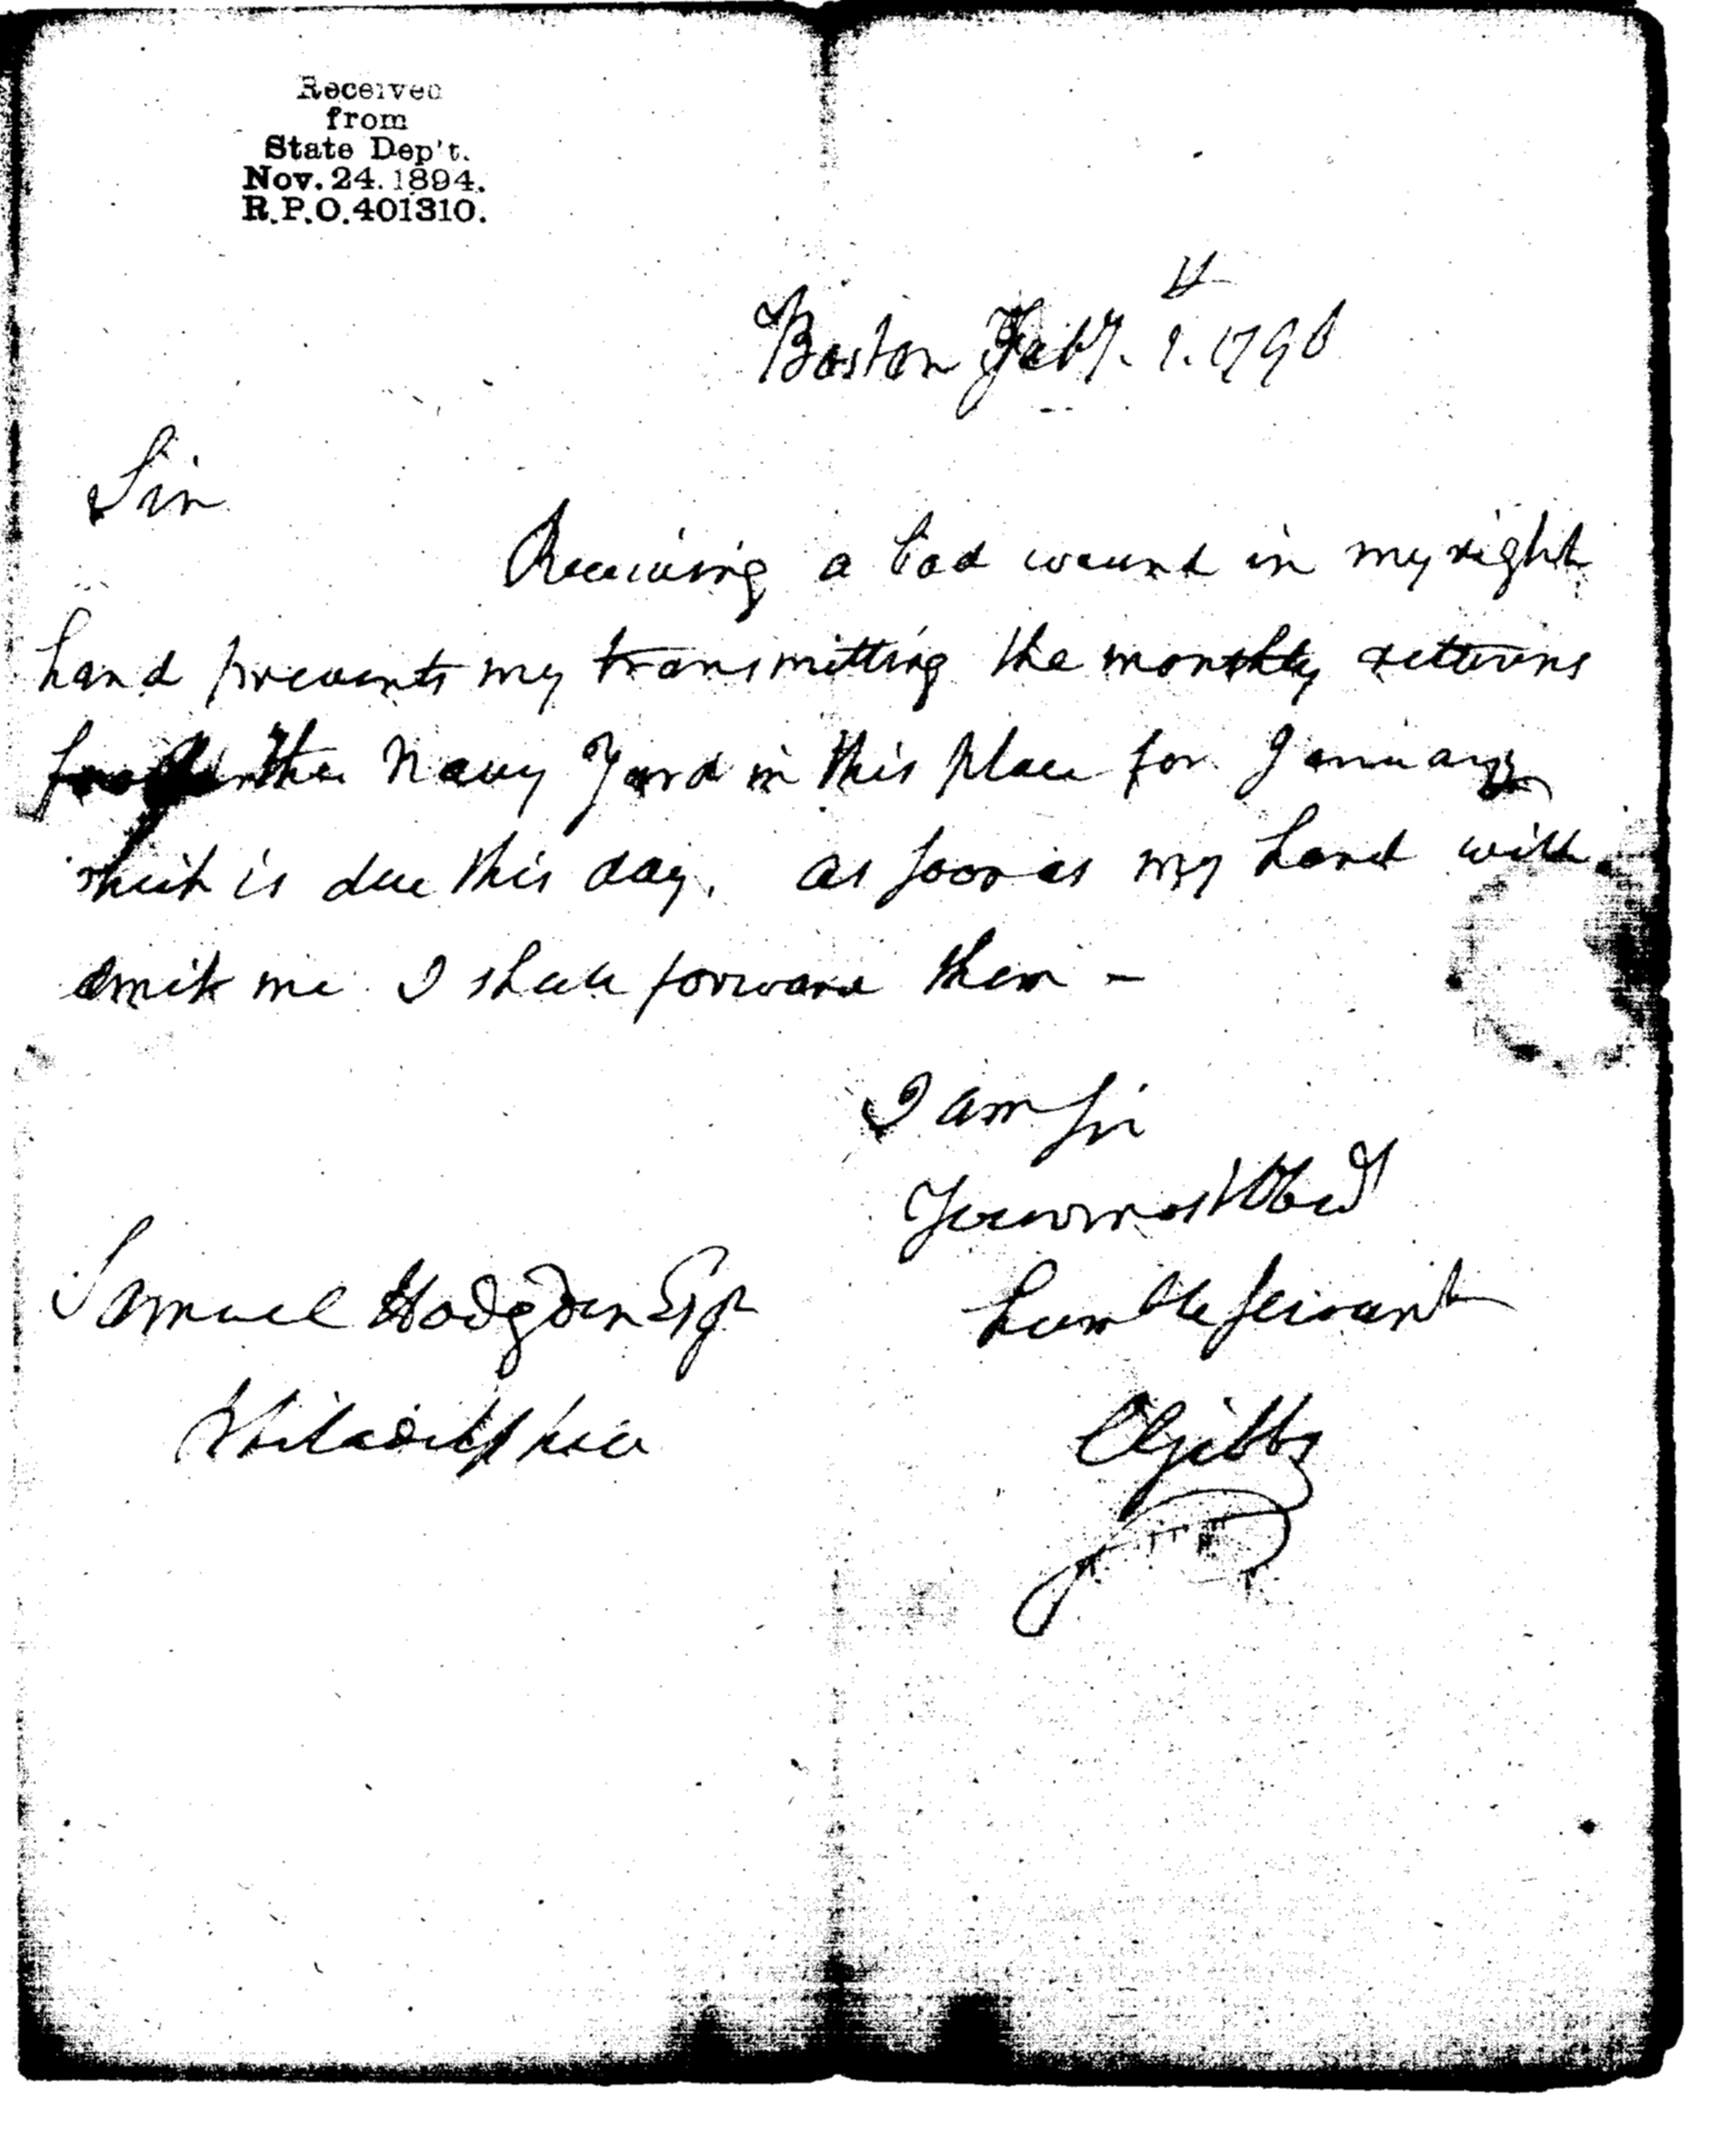 Received
from
State Dep't.
Nov. 24. 1894.
R.P.O. 401310.
Boston Feby. 1. 1796
Sir
Receiving a bad wound in my right
hand prevents my transmitting the monthly returns
the Navy Yard in this place for January
which is due this day. as soon as my hand will
admit me I shall forward them -
I am Sir
Your most Obed
humble servant
Samuel Hodgdon Esqr
Philadelphia
C Gibbs